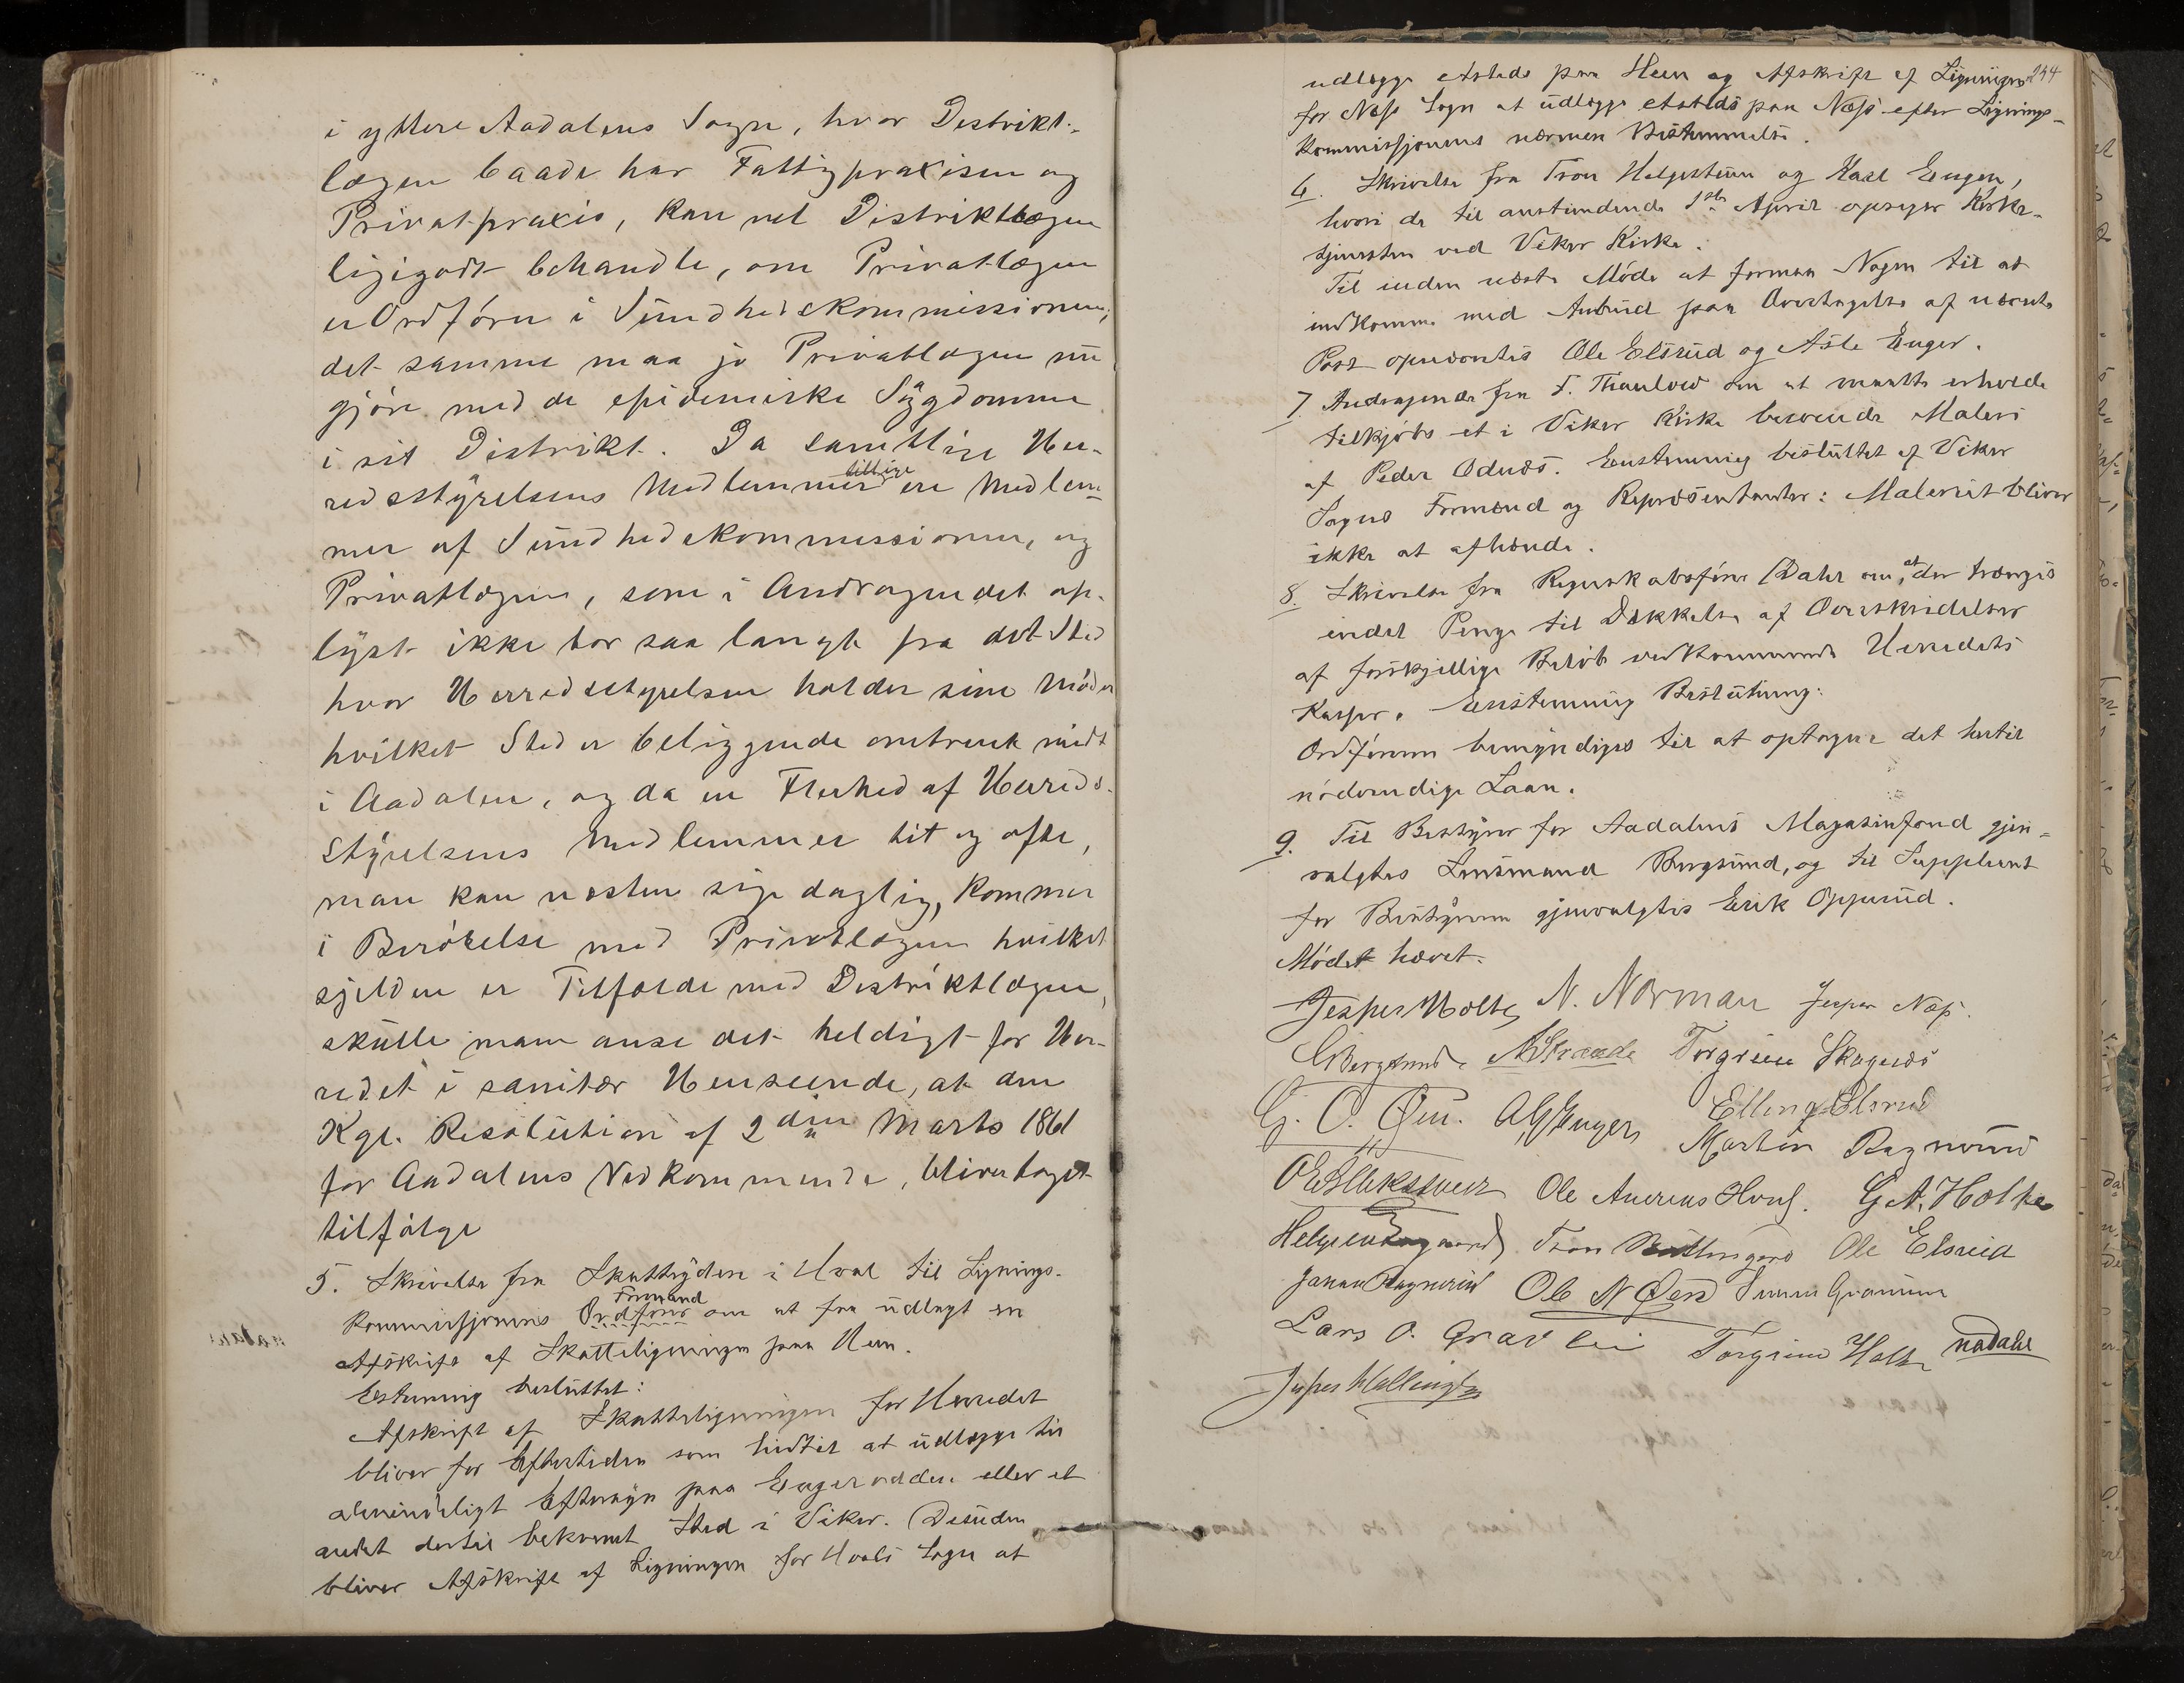 i yttere Aadalens Sogn, hvor Distrikt-
lægen baade har Fattigpraxisen og
Privatpraxis, kan vel Distriktlægen
ligegodt behandle, om Privatlægen
er Ordfører i Sundhedskommissionen,
det samme maa jo Privatlægen nu
gjøre med de epidemiske Sygdomme
i sit Distrikt. Da samtlige Her-
redsstyrelsens Medlemmer tillige ere Medlem-
mer af Sundhedskommissionen, og
Privatlægen, som i Andragendet op-
lyst ikke bor saa langt fra det Sted
hvor Herredsstyrelsen holder sine Møder
hvilket Sted er beliggende omtrent midt
i Aadalen, og da en Flerhed af Herreds-
Styrelsens Medlemmer tit og ofte,
man kan næsten sige daglig, kommer
i Berørelse med Privatlægen hvilket
sjelden er Tilfælde med Distriktlægen,
skulle man anse det heldigt for Her-
redet i sanitær Henseende, at den
Kgl. Resolution af 2den Marts 1861
for Aadalens Vedkommende, bliver taget
tilfølge
5. Skrivelse fra Skatteydere i Hval til Lignings-
kommissjonens Ordfører Formand om at faa udlagt en
Afskrift af Skatteligningen paa Heen.
Enstemmig besluttet:
Afskrift af Skatteligningen for Herredet
bliver for Eftertiden som hidtil at udlægge til
almindeligt Eftersyn paa Engerodden eller et
andet dertil bekvemt Sted i Viker. Desuden
bliver Afskrift af Ligningen for Hvals Sogn at
244
udlægge etsteds paa Heen og Afskrift af Ligningen
for Næs Sogn at udlægge etsteds paa Næs efter Lignings-
kommissjonens nærmere Bestemmelse.
6. Skrivelse fra Tron Helgesteen og Karl Enger,
hvori de til anstundende 1ste April opsiger Kirke-
tjenesten ved Viker Kirke.
Til inden næste Møde at formaa Nogen til at
indkomme med Anbud paa Overtagelse af nævnte
Post opnævntes Ole Elsrud og Asle Enger.
7. Andragende fra F. Thaulow om at maatte erholde
tilkjøbs et i Viker Kirke beroende Maleri
af Peder Odnæs. Enstemmig besluttet af Viker
Sogns Formænd og Repræsentanter: Maleriet bliver
ikke at afhænde.
8. Skrivelse fra Regnskabsfører Dahl om, at der trænges
endel Penge til Dækkelse af Overskridelser
af forskjellige Beløb vedkommende Herredets
Kasser. Enstemmig Beslutning:
Ordføreren bemyndiges til at optage det hertil
nødvendige Laan.
9. Til Bestyrer for Aadalens Magasinfond gjen-
valgtes Lensmand Bergsund, og til Suppleant
for Bestyreren gjenvalgtes Erik Opperud.
Mødet hævet.
Jesper Holte N. Norman Jesper Næs.
Bergsund. A Strande Torgrim Skagnæs
G. O. Øen. A G Enger Elling Elsrud
Marthin Ragnerud
Ole Andreas Hval. G. A. Holte
Tron Bollingmo Ole Elsrud
Ole N Øen Simen Gran
Lars O. Gravlei Torgrim Holte
Jesper Hallingby